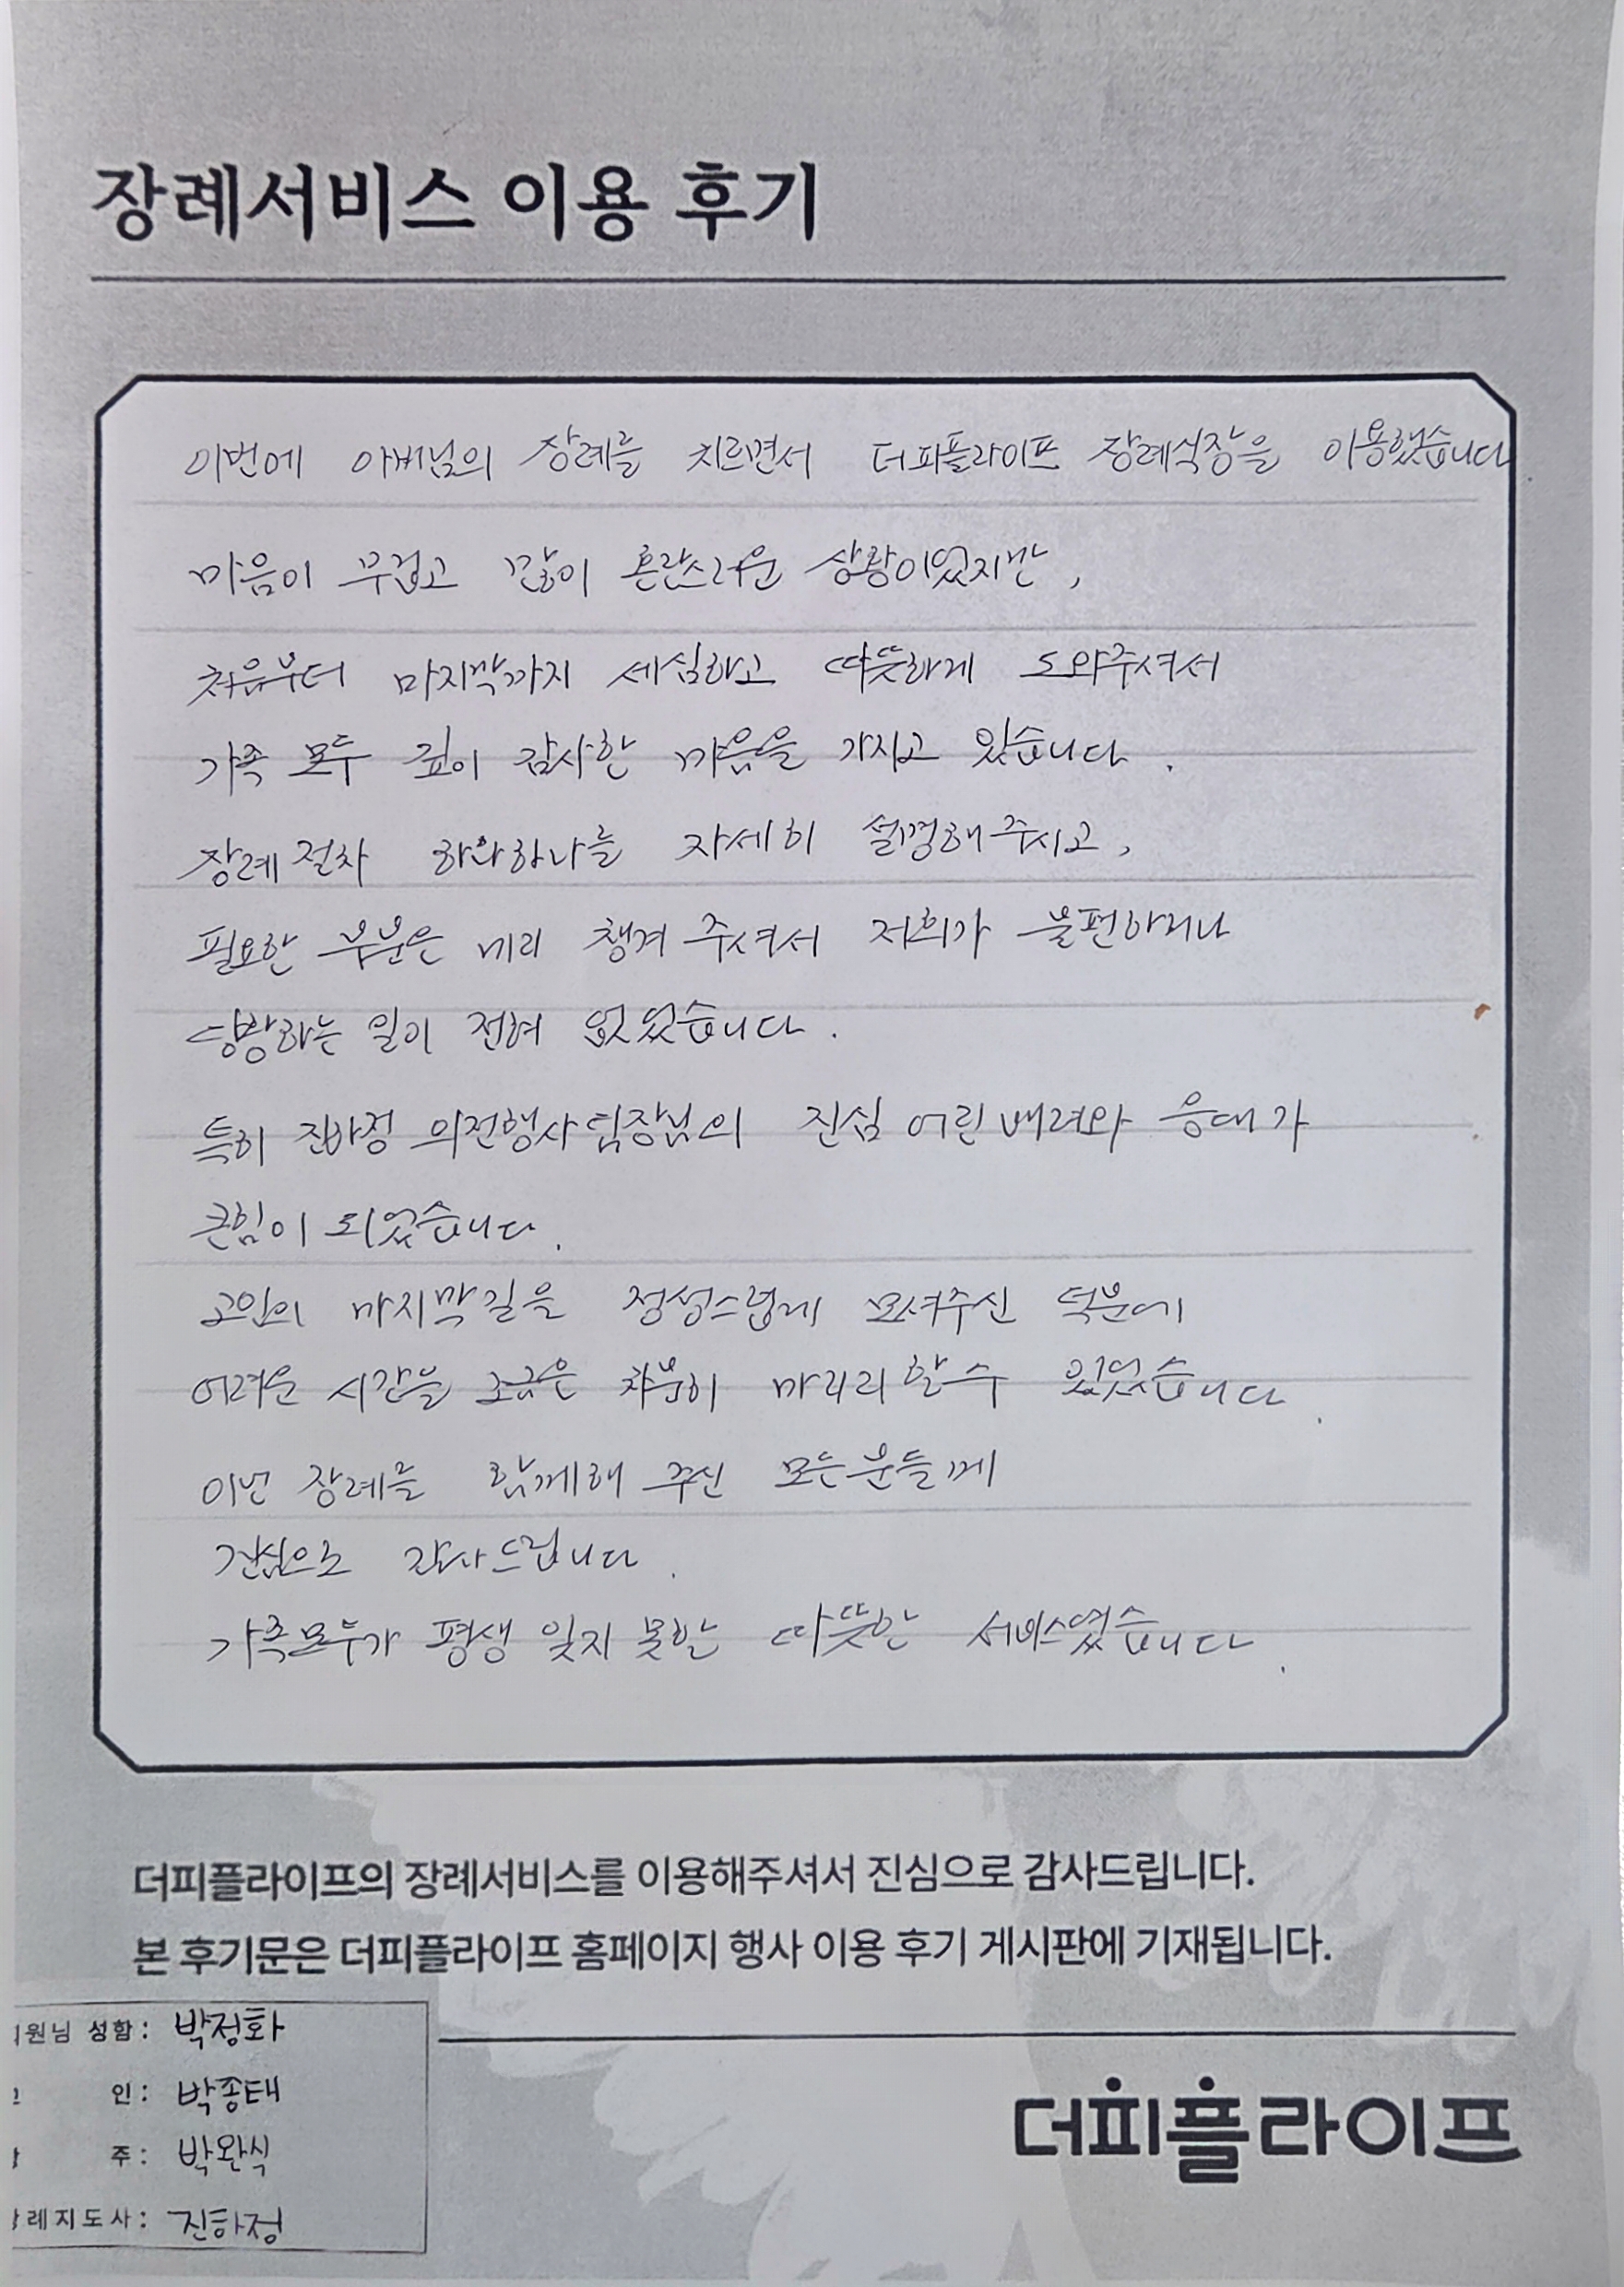 장례서비스 이용 후기
이번에 아버님의 장례를 치르면서 더피플라이프 장례식장을 이용했습니다
마음이 무겁고 많이 혼란스러운 상황이었지만,
처음부터 마지막까지 세심하고 따뜻하게 도와주셔서
가족 모두 깊이 감사한 마음을 가지고 있습니다.
장례 절차 하나하나를 자세히 설명해주시고,
필요한 부분은 미리 챙겨 주셔서 저희가 불편하거나
당황하는 일이 전혀 없었습니다.
특히 진하정 의전행사팀장님의 진심 어린 배려와 응대가
큰힘이 되었습니다.
고인의 마지막길을 정성스럽게 모셔주신 덕분에
어려운 시간을 조금은 차분히 마무리 할수 있었습니다.
이번 장례를 함께해 주신 모든분들께
진심으로 감사드립니다.
가족모두가 평생 잊지 못할 따뜻한 서비스였습니다.
더피플라이프의 장례서비스를 이용해주셔서 진심으로 감사드립니다.
본 후기문은 더피플라이프 홈페이지 행사 이용 후기 게시판에 기재됩니다.
원님 성함: 박정화
인: 박종태
주: 박완식
례지도사: 진하정
더피플라이프